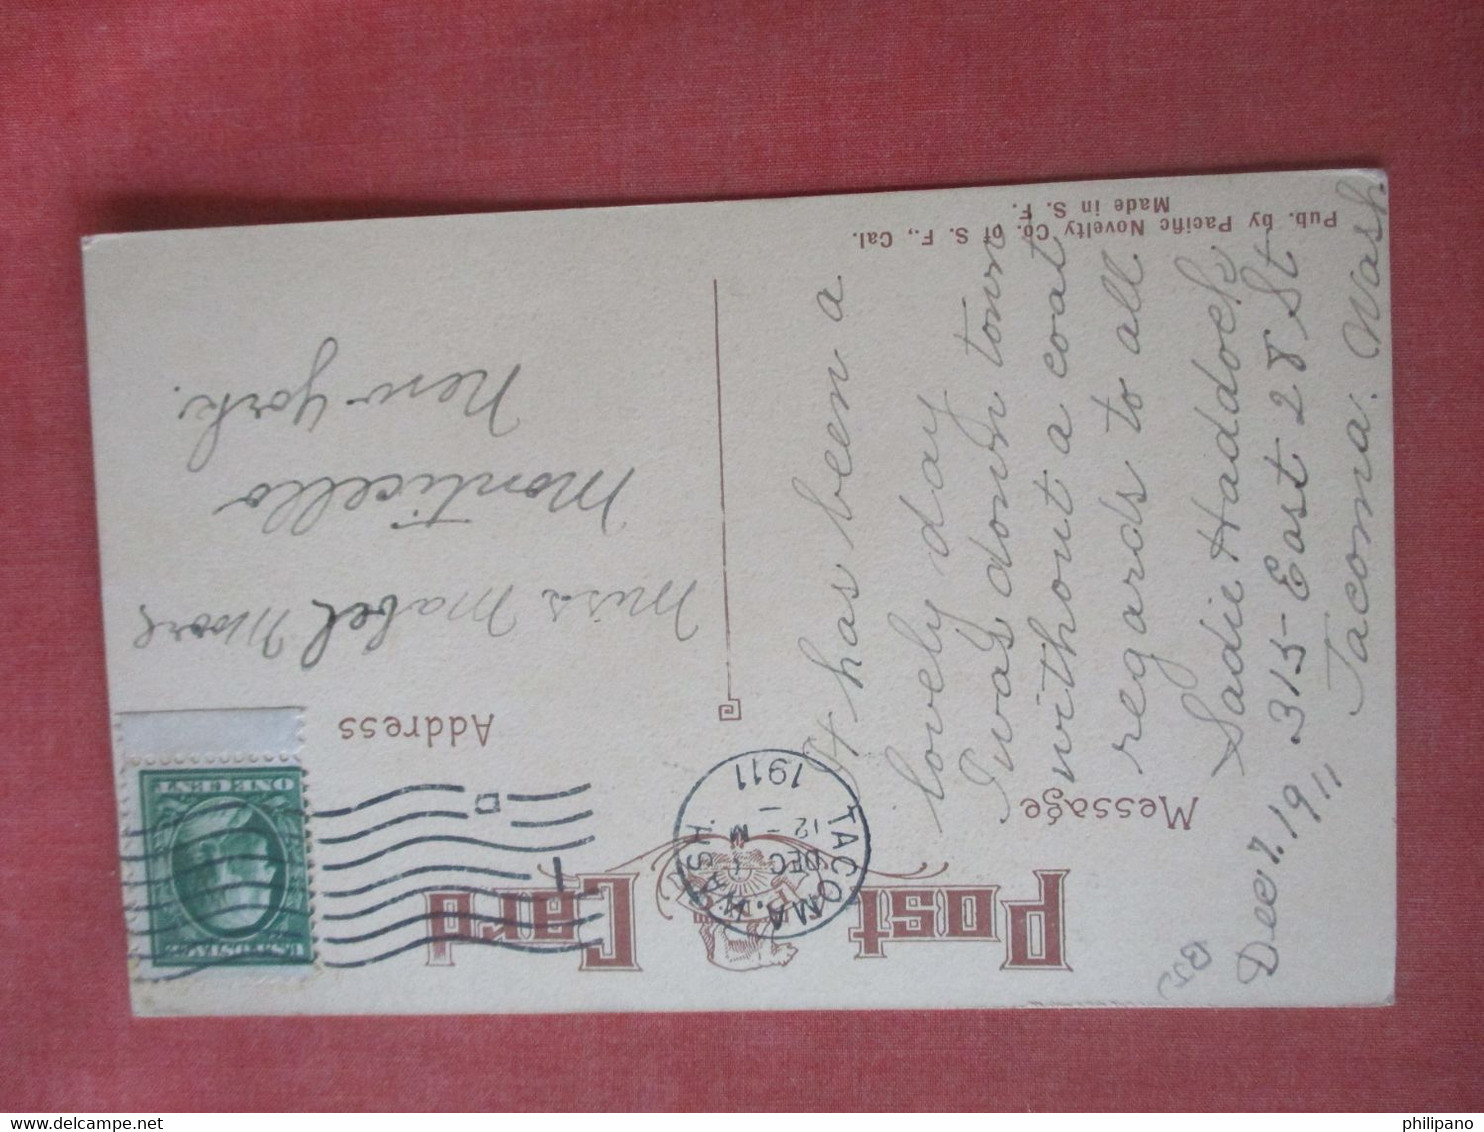 Post Card
Message
Address
TACOMA, WASH.
DEC
12 - M
1911
D
1
U.S. POSTAGE
ONE CENT
Dec 7. 1911
It has been a
lovely day
I was down town
without a coat
regards to all
Sadie Haddock
315 - East 28 St
Tacoma. Wash
Miss Mabel Moore
Monticello
New York.
Pub. by Pacific Novelty Co. of S. F., Cal.
Made in S. F.
philipano